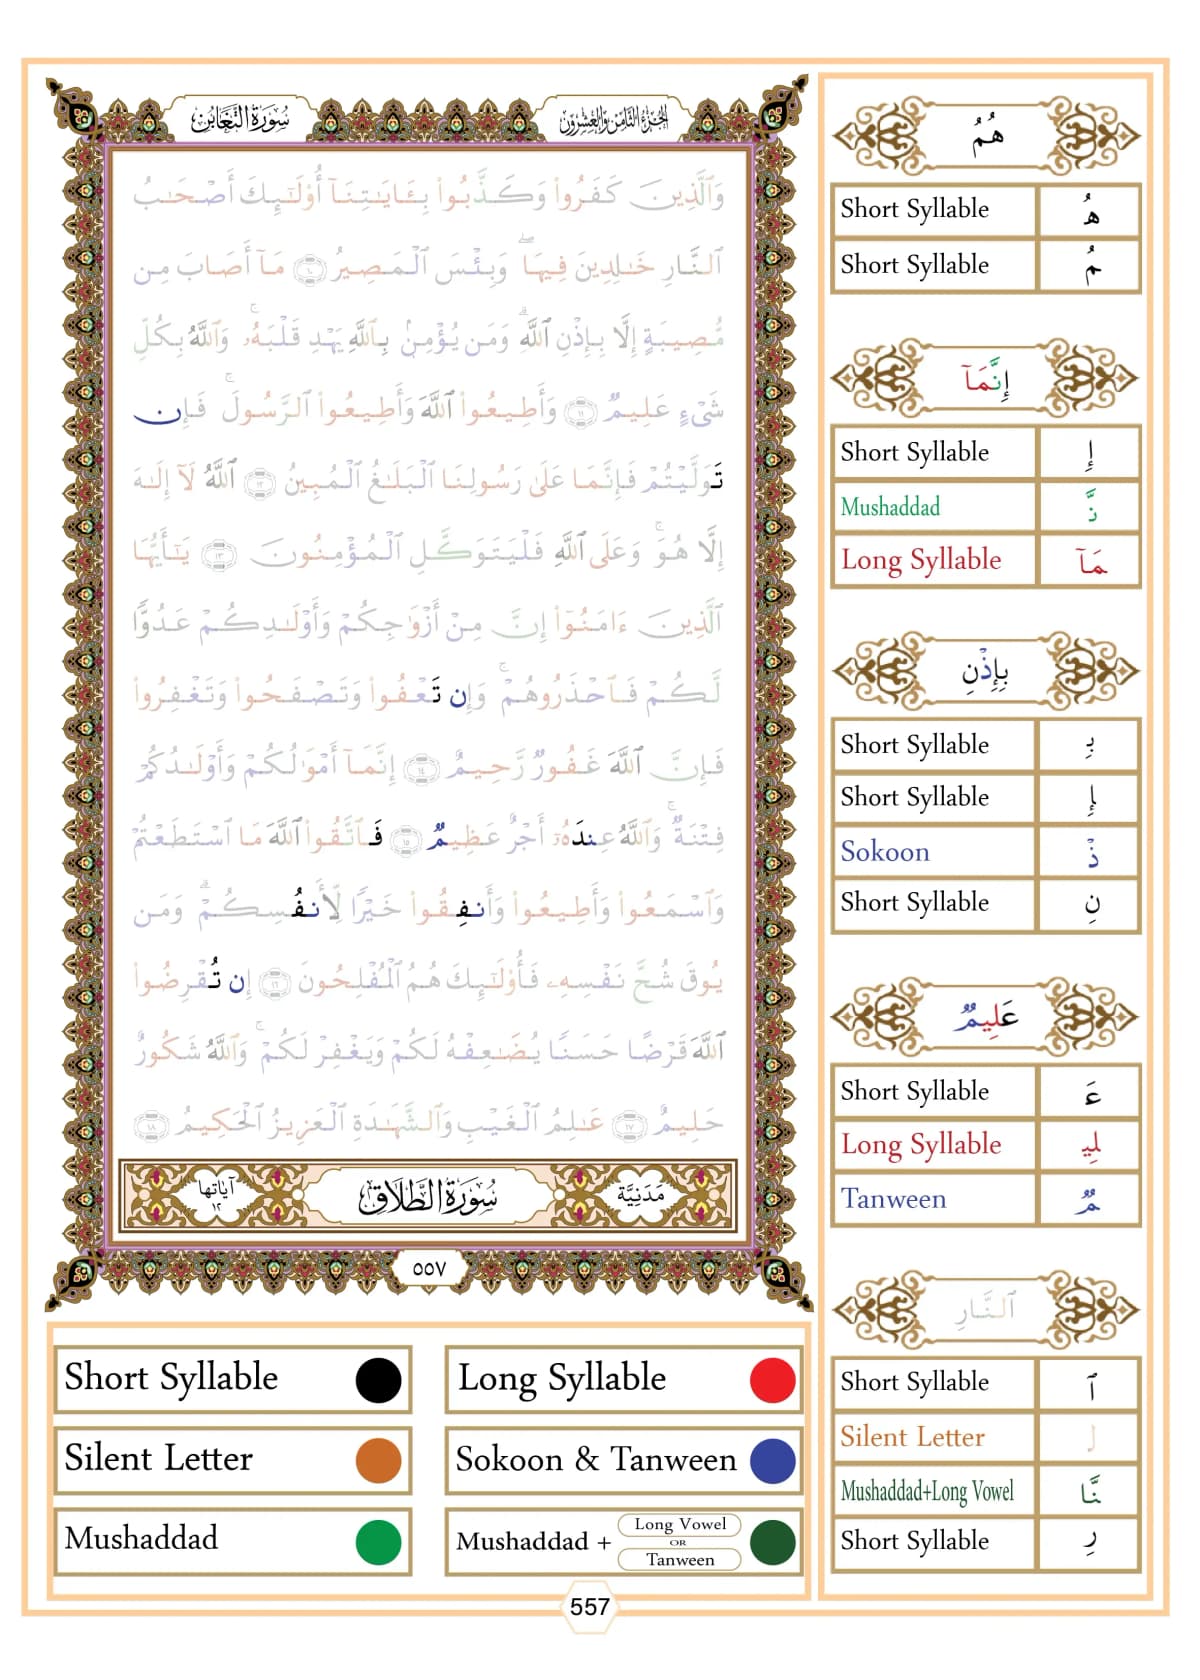 سُورَةُ التَّغَابُنِ
الجُزْءُ الثَّامِنُ وَالعِشْرُونَ
وَٱلَّذِينَ كَفَرُوا۟ وَكَذَّبُوا۟ بِـَٔايَـٰتِنَآ أُو۟لَـٰٓئِكَ أَصْحَـٰبُ
ٱلنَّارِ خَـٰلِدِينَ فِيهَا ۖ وَبِئْسَ ٱلْمَصِيرُ ١٠ مَآ أَصَابَ مِن
مُّصِيبَةٍ إِلَّا بِإِذْنِ ٱللَّهِ ۗ وَمَن يُؤْمِنۢ بِٱللَّهِ يَهْدِ قَلْبَهُۥ ۚ وَٱللَّهُ بِكُلِّ
شَىْءٍ عَلِيمٌ ١١ وَأَطِيعُوا۟ ٱللَّهَ وَأَطِيعُوا۟ ٱلرَّسُولَ ۚ فَإِن
تَوَلَّيْتُمْ فَإِنَّمَا عَلَىٰ رَسُولِنَا ٱلْبَلَـٰغُ ٱلْمُبِينُ ١٢ ٱللَّهُ لَآ إِلَـٰهَ
إِلَّا هُوَ ۚ وَعَلَى ٱللَّهِ فَلْيَتَوَكَّلِ ٱلْمُؤْمِنُونَ ١٣ يَـٰٓأَيُّهَا
ٱلَّذِينَ ءَامَنُوٓا۟ إِنَّ مِنْ أَزْوَٰجِكُمْ وَأَوْلَـٰدِكُمْ عَدُوًّا
لَّكُمْ فَٱحْذَرُوهُمْ ۚ وَإِن تَعْفُوا۟ وَتَصْفَحُوا۟ وَتَغْفِرُوا۟
فَإِنَّ ٱللَّهَ غَفُورٌ رَّحِيمٌ ١٤ إِنَّمَآ أَمْوَٰلُكُمْ وَأَوْلَـٰدُكُمْ
فِتْنَةٌ ۚ وَٱللَّهُ عِندَهُۥٓ أَجْرٌ عَظِيمٌ ١٥ فَٱتَّقُوا۟ ٱللَّهَ مَا ٱسْتَطَعْتُمْ
وَٱسْمَعُوا۟ وَأَطِيعُوا۟ وَأَنفِقُوا۟ خَيْرًا لِّأَنفُسِكُمْ ۗ وَمَن
يُوقَ شُحَّ نَفْسِهِۦ فَأُو۟لَـٰٓئِكَ هُمُ ٱلْمُفْلِحُونَ ١٦ إِن تُقْرِضُوا۟
ٱللَّهَ قَرْضًا حَسَنًا يُضَـٰعِفْهُ لَكُمْ وَيَغْفِرْ لَكُمْ ۚ وَٱللَّهُ شَكُورٌ
حَلِيمٌ ١٧ عَـٰلِمُ ٱلْغَيْبِ وَٱلشَّهَـٰدَةِ ٱلْعَزِيزُ ٱلْحَكِيمُ ١٨
مَدَنِيَّة سُورَةُ الطَّلَاقِ آيَاتها ١٢
٥٥٧
هُمُ
Short Syllable هُ
Short Syllable مُ
إِنَّمَآ
Short Syllable إِ
Mushaddad نَّ
Long Syllable مَآ
بِإِذْنِ
Short Syllable بِـ
Short Syllable إِ
Sokoon ذْ
Short Syllable نِ
عَلِيمٌ
Short Syllable عَـ
Long Syllable لِيـ
Tanween مٌ
ٱلنَّارِ
Short Syllable ٱ
Silent Letter لـ
Mushaddad+Long Vowel نَّا
Short Syllable رِ
Short Syllable
Long Syllable
Silent Letter
Sokoon & Tanween
Mushaddad
Mushaddad + Long Vowel OR Tanween
557